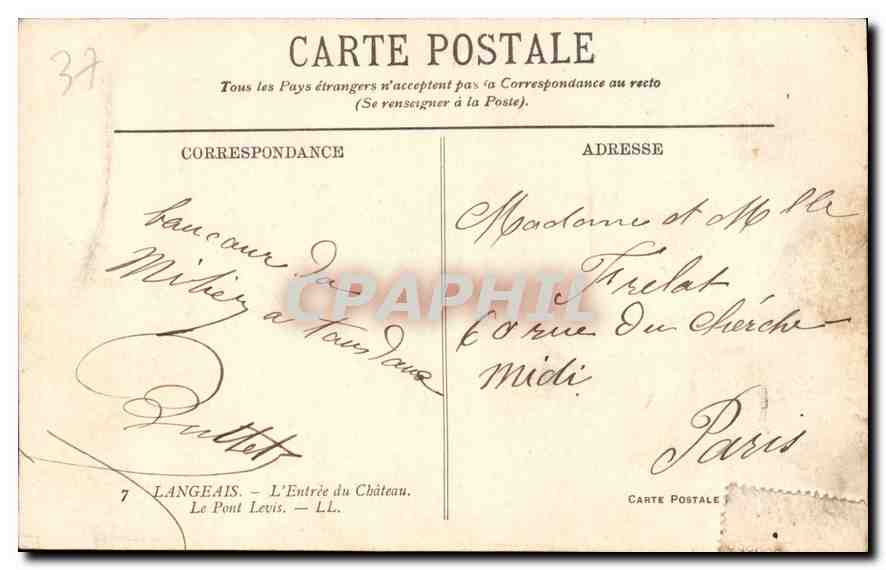 37
CARTE POSTALE
Tous les Pays étrangers n'acceptent pas la Correspondance au recto
(Se renseigner à la Poste).
CORRESPONDANCE
bancaur da
Milier
a tous daux
Buttet
7 LANGEAIS. - L'Entrée du Château.
Le Pont Levis. - LL.
ADRESSE
Madame et Mlle
Frelat
60 rue du Chérche
Midi
Paris
CARTE POSTALE
CPAPHIL